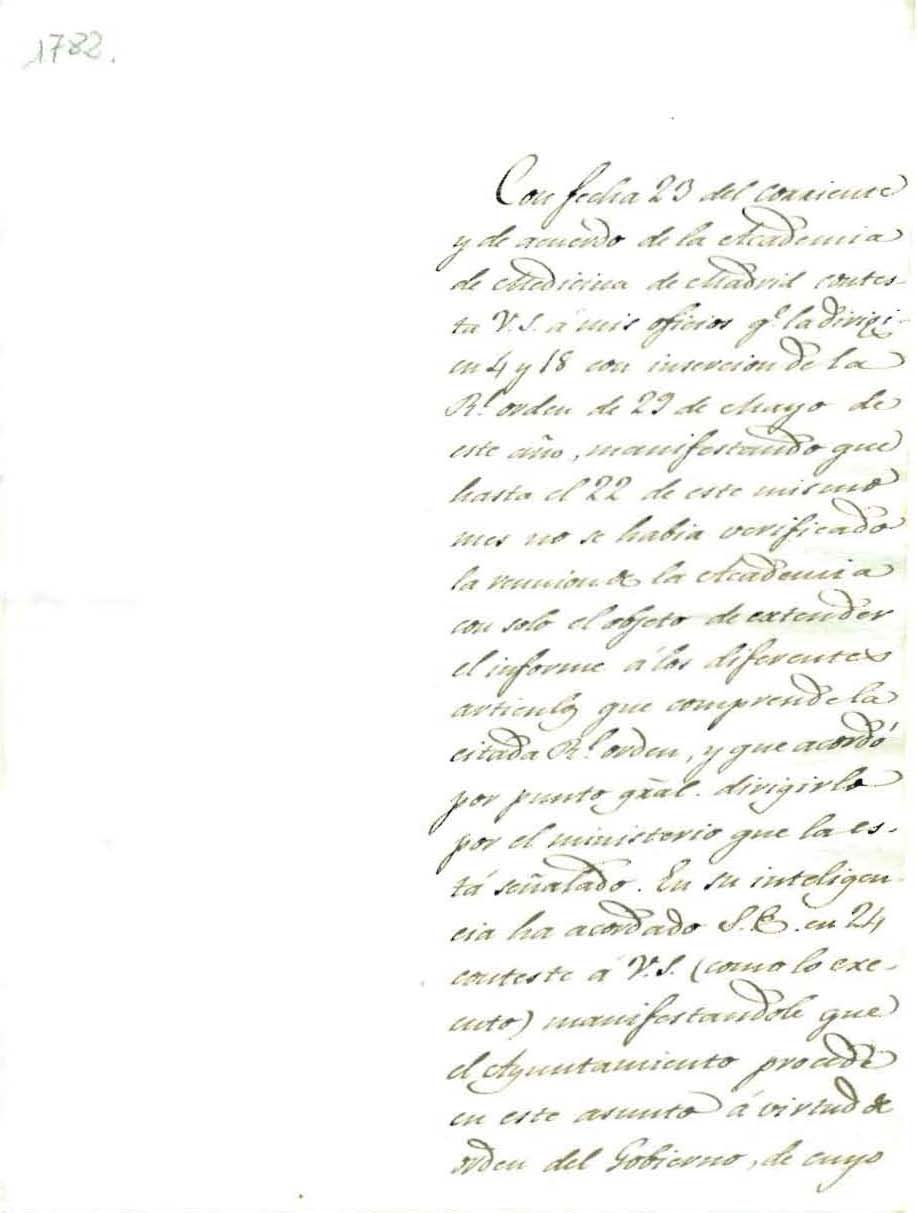 1782.
Con fecha 23 del corriente
y de acuerdo de la Academia
de Medicina de Madrid contes-
ta V.S. á mis oficios q.e la dirigi
en 4 y 18 con insercion de la
Rl. orden de 29 de Mayo de
este año, manifestando que
hasta el 22 de este mismo
mes no se habia verificado
la reunion de la Academia
con solo el objeto de extender
el informe á los diferentes
articulos que comprende la
citada Rl. orden, y que acordó
por punto gral. dirigirlo
por el ministerio que la es-
tá señalado. En su inteligen-
cia ha acordado S.E. en 24
conteste á V.S. (como lo exe-
cuto) manifestandole que
el Ayuntamiento procede
en este asunto á virtud de
orden del Gobierno, de cuyo